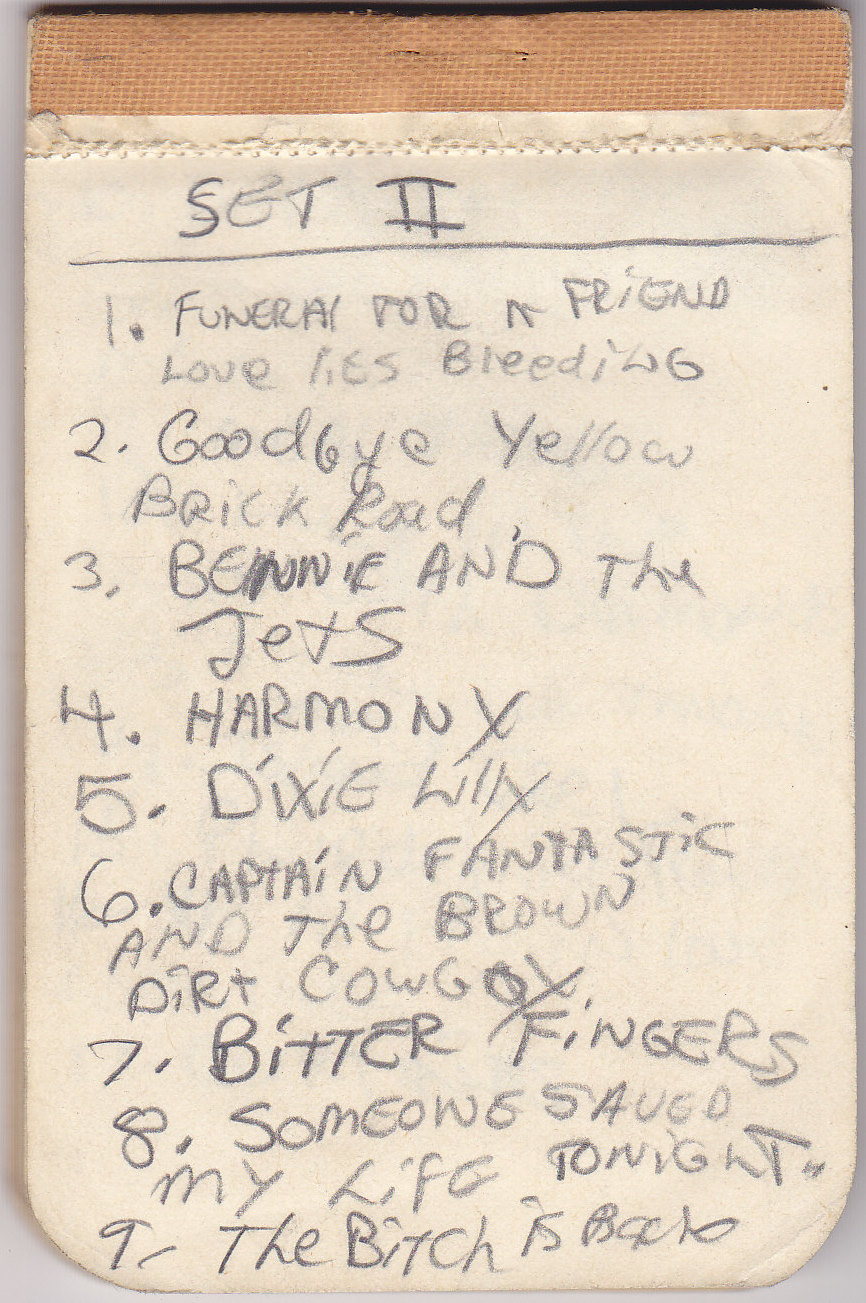 SET II
1. FUNERAl FOR A FRiEND
Love liES BleediNG
2. Goodbye Yellow
BRicK Road
3. BENNiE AND The
JetS
4. HARMONY
5. DiXiE Lilly
6. CAPTAiN FANTASTiC
AND The BROWN
DiRt COWBOY
7. BiTTER FiNGERS
8. SOMEONE SAVED
MY LiFE TONiGHT
9. The BiTch iS Back